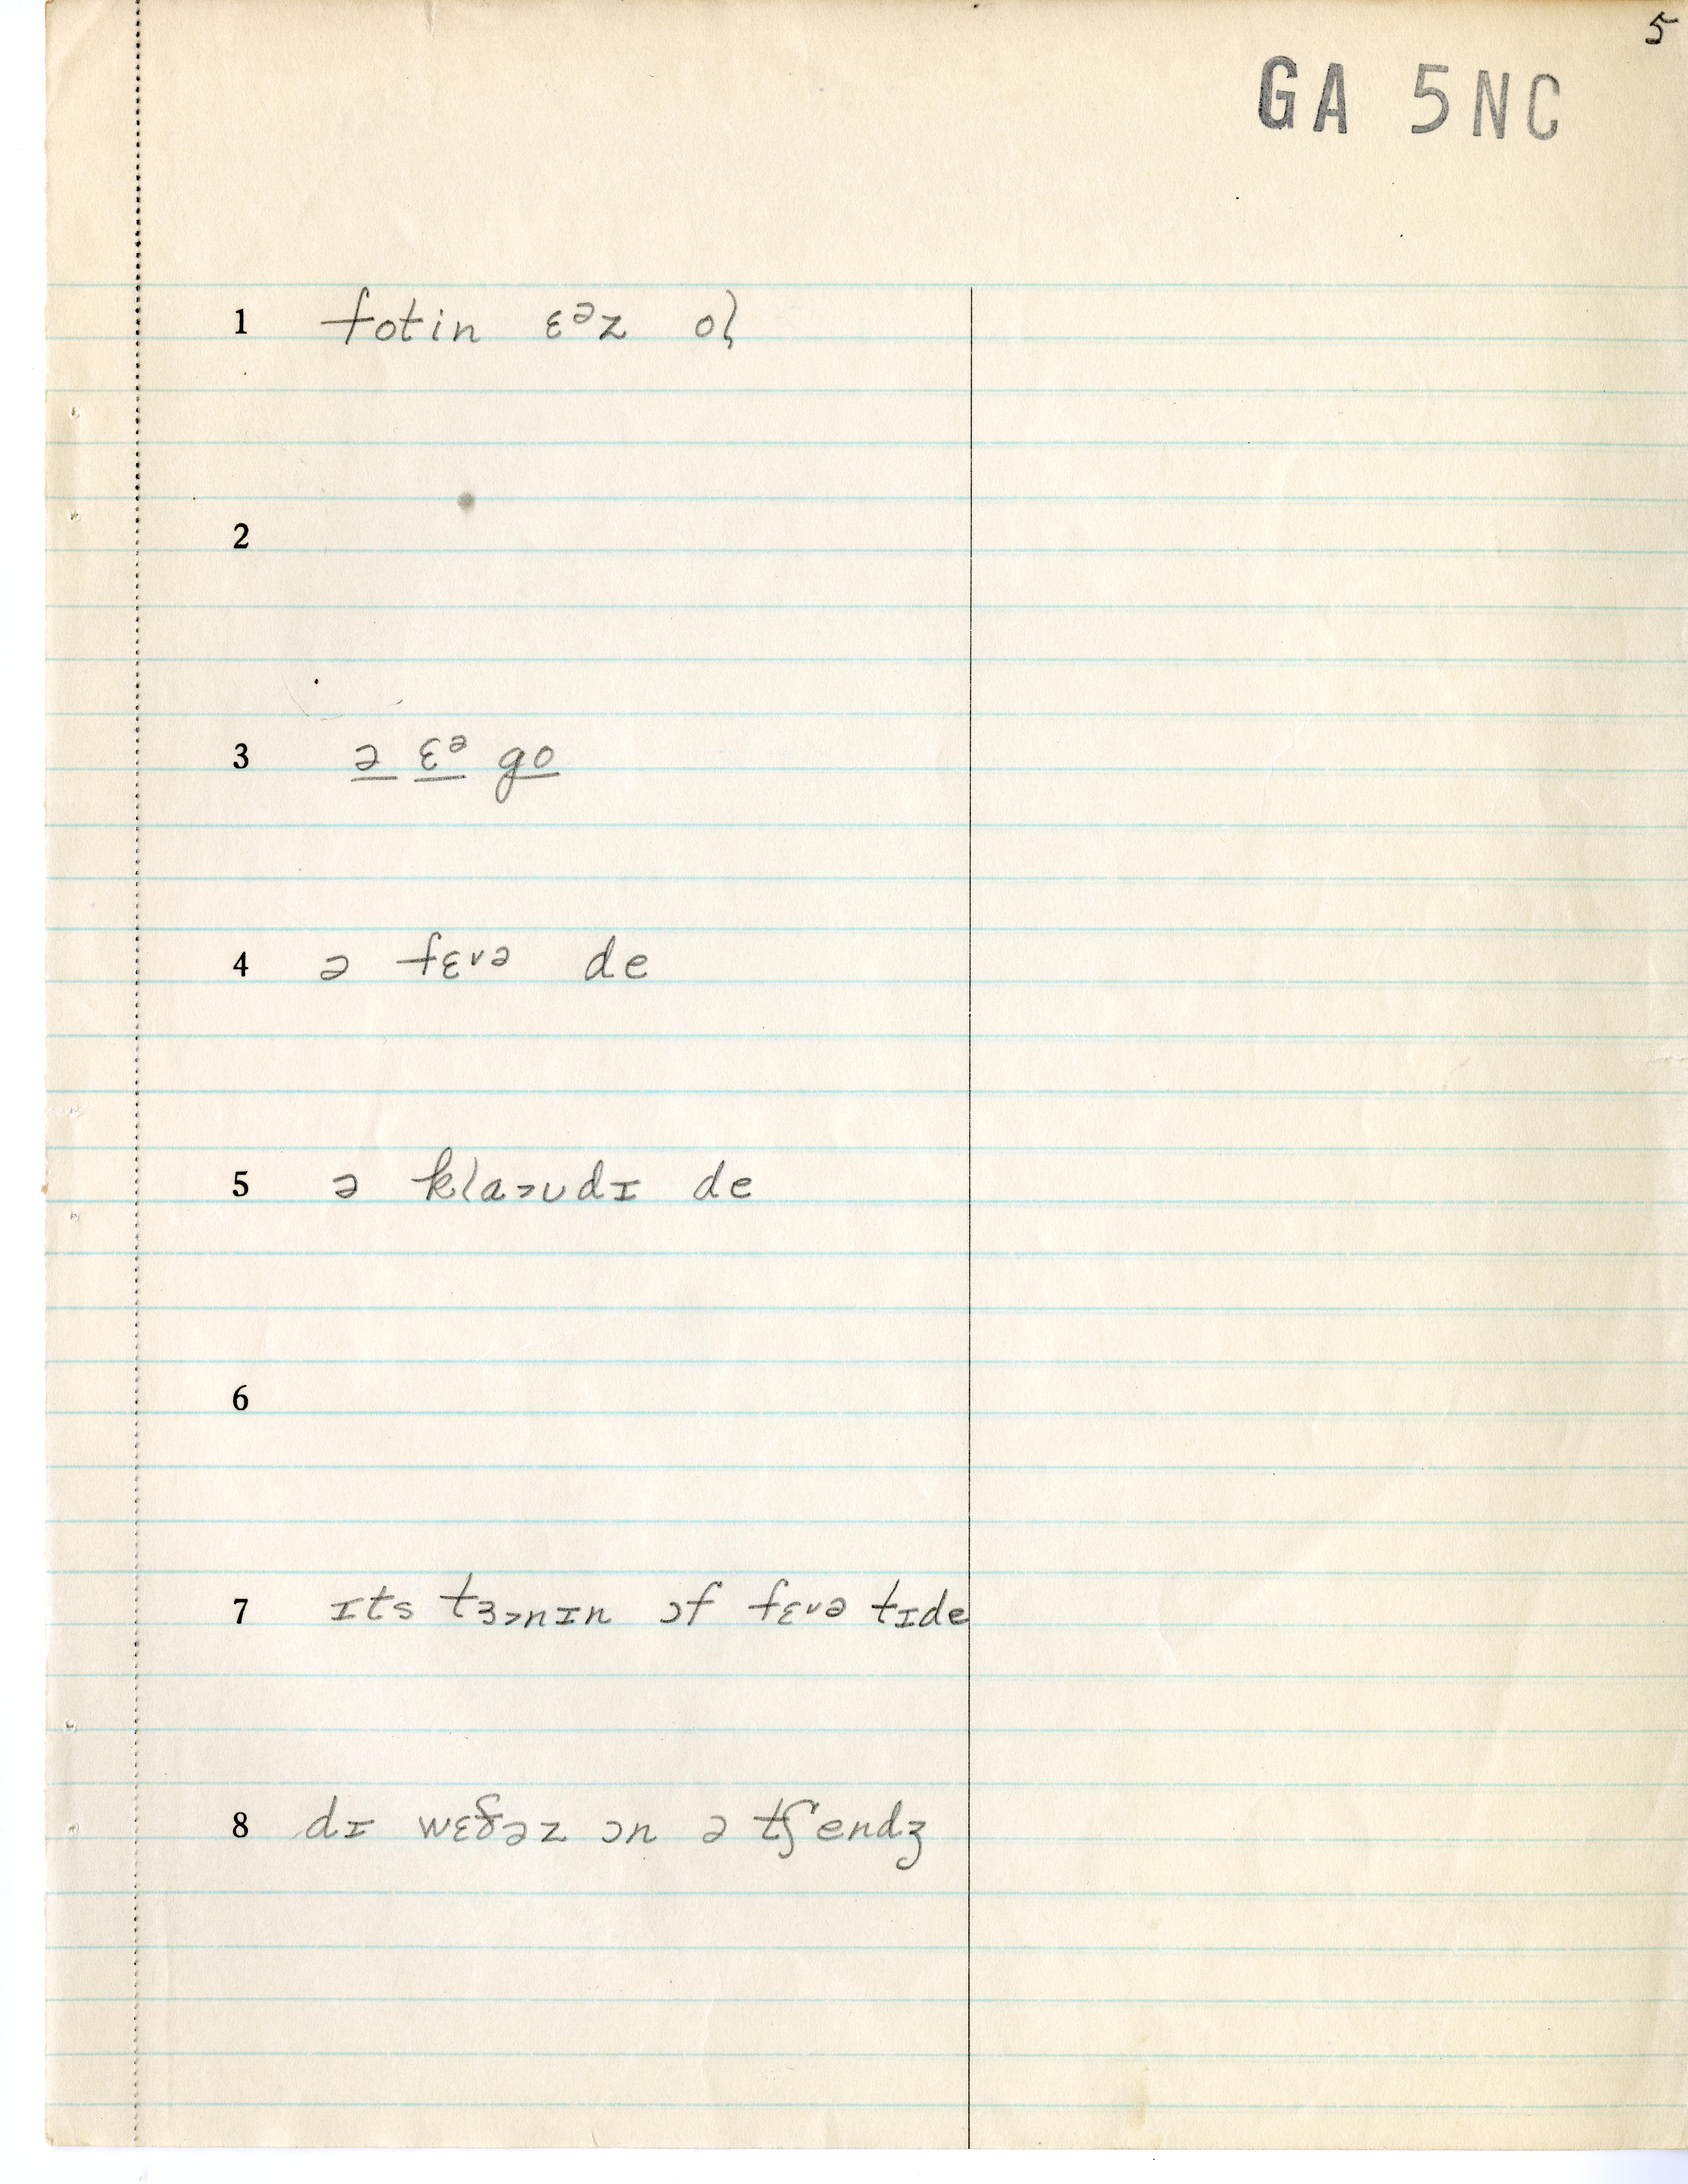 5
GA 5NC
1 fotin ɛᵊz ol̩
2
3 ə ɛᵊ go
4 ə fɛvə de
5 ə klaʊdɪ de
6
7 ɪts tɜnɪn ɔf fɛvə tɪde
8 dɪ wɛðəz ɔn ə tʃendʒ